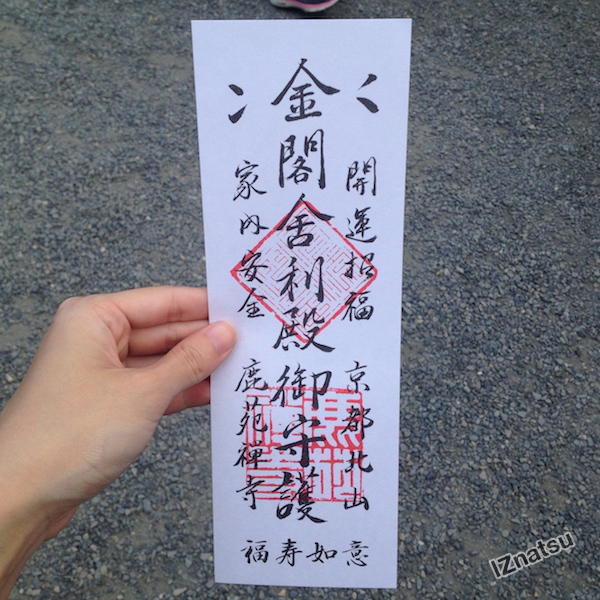 開運招福 京都北山
金閣舎利殿御守護
家内安全 鹿苑禅寺
福寿如意
IZnatsu